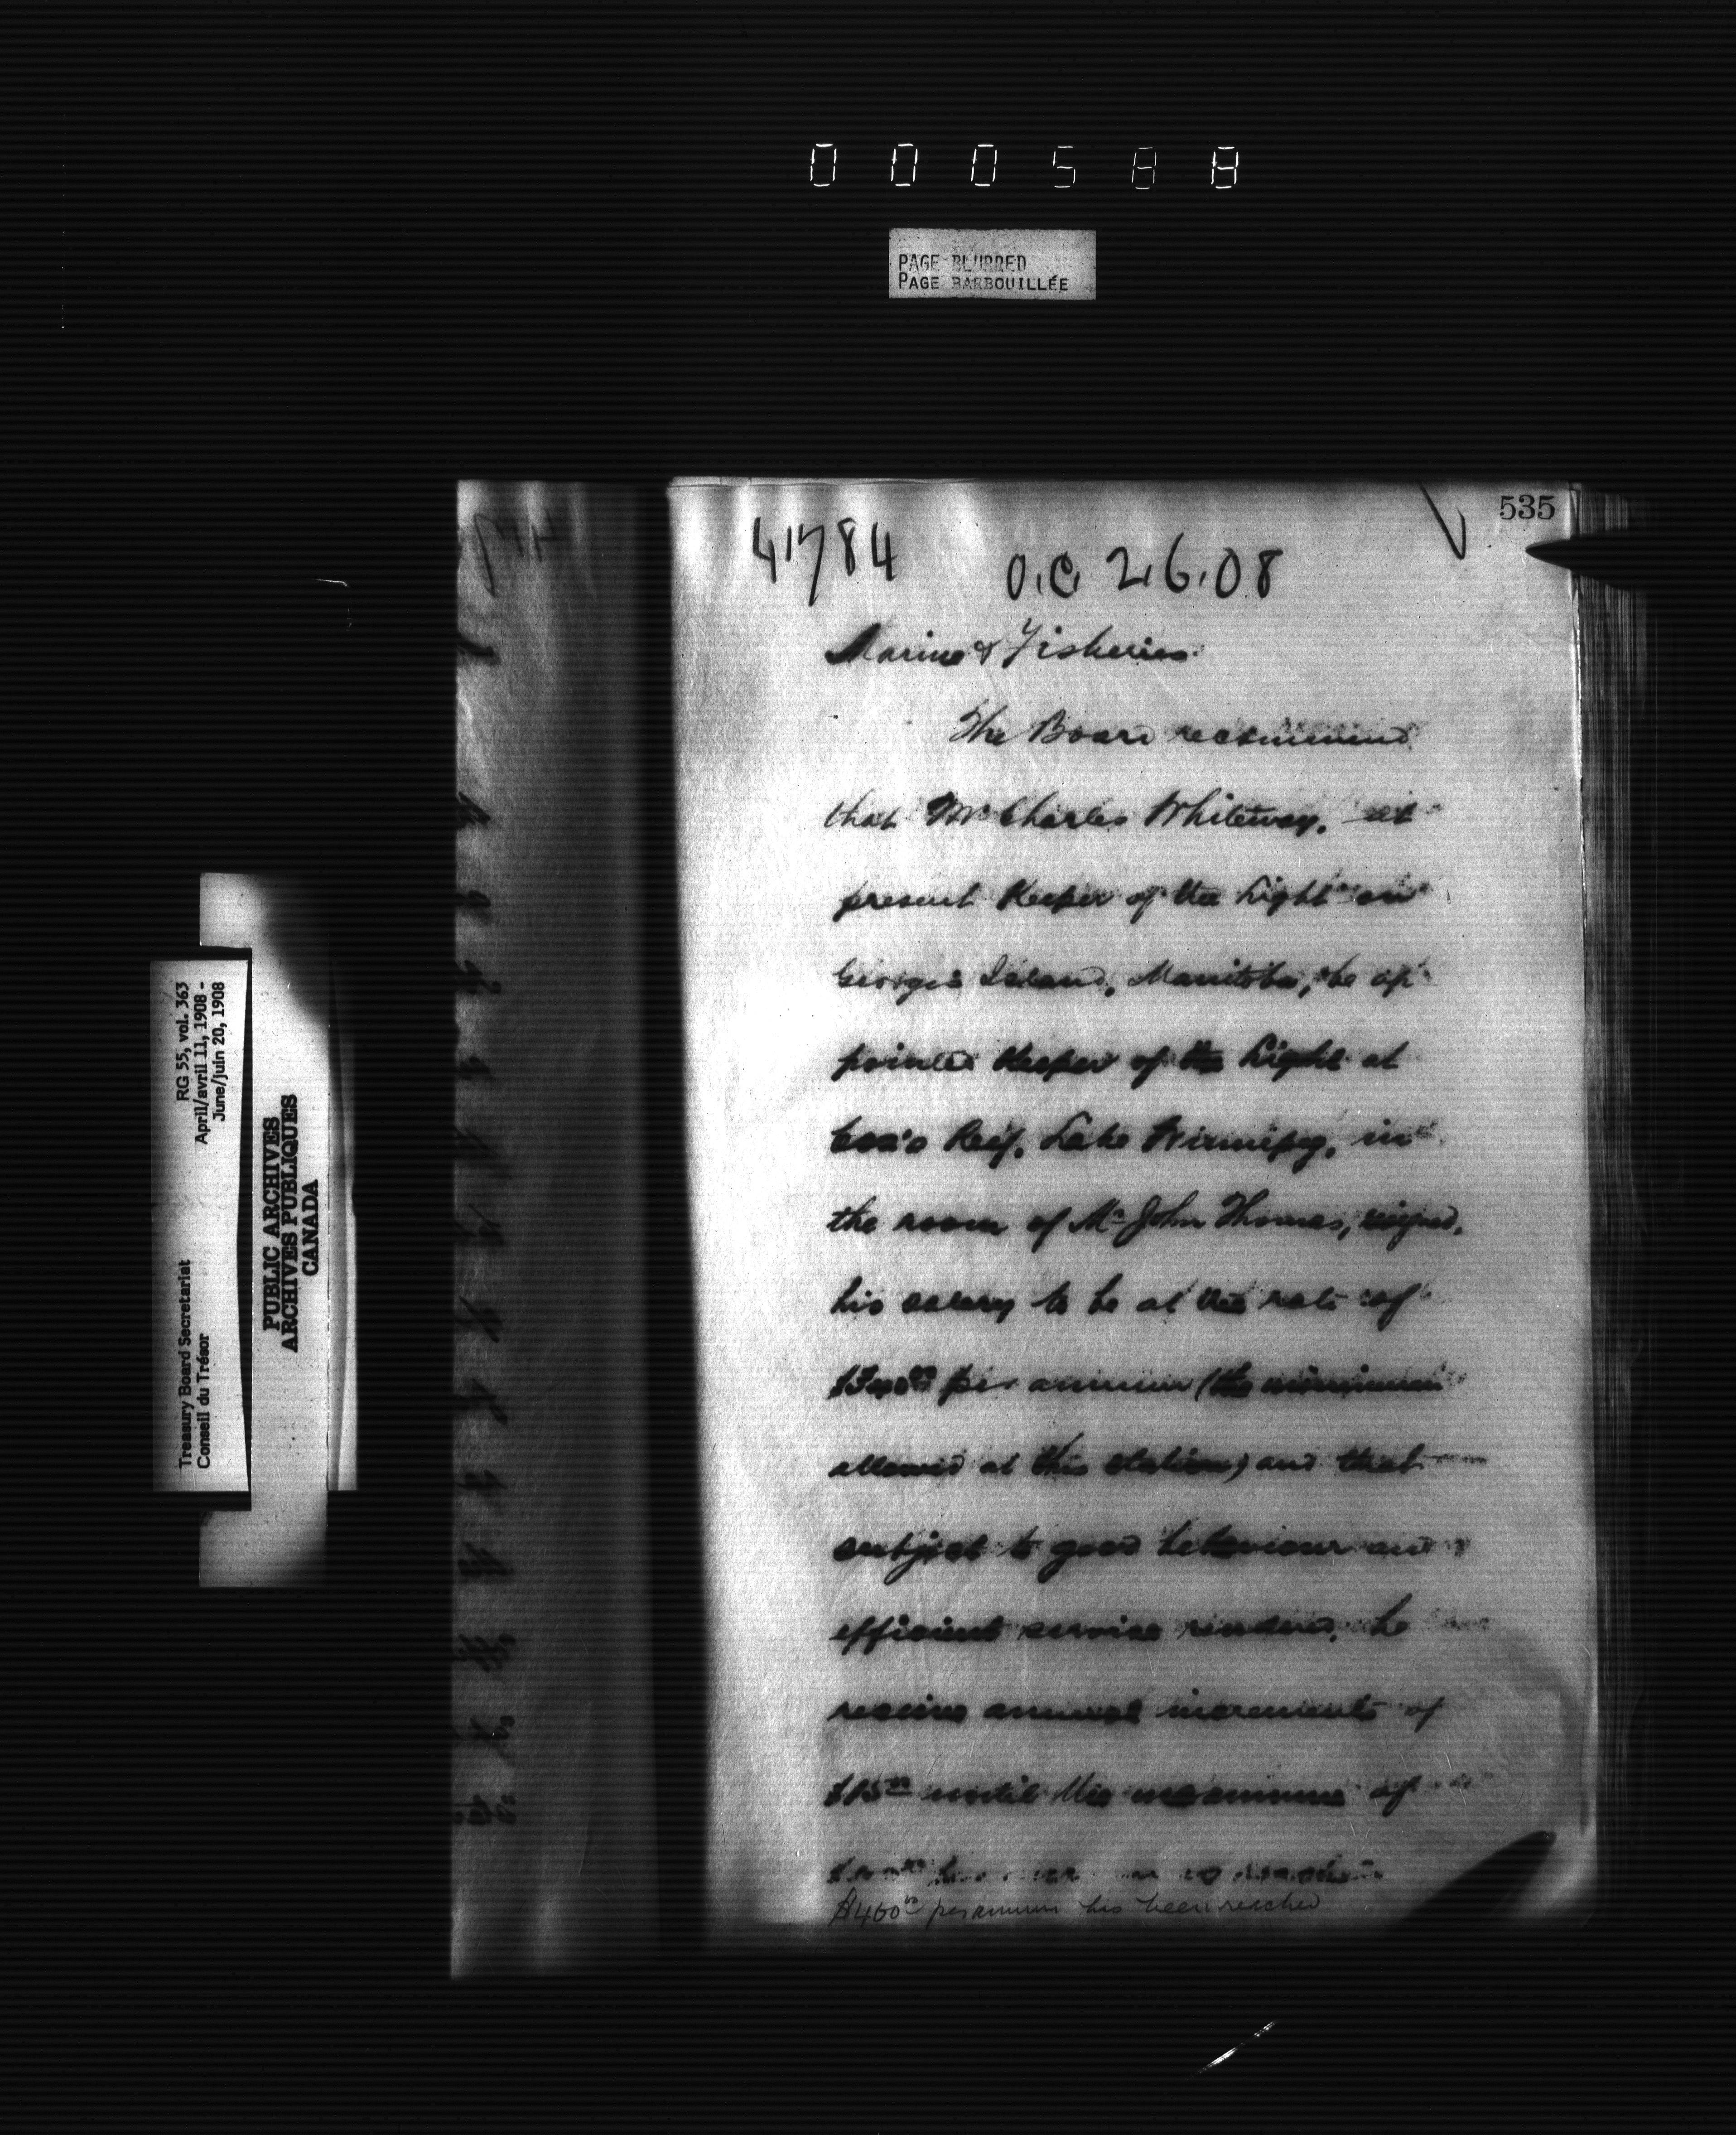 000588
PAGE BLURRED
PAGE BARBOUILLÉE
535
41784 O.C. 2.6.08
Marine & Fisheries
The Board recommend
that Mr Charles Whiteway, at
present Keeper of the Light on
George's Island, Manitoba, be ap
pointed Keeper of the Light at
Cox's Reef, Lake Winnipeg, in
the room of Mr John Thomas, resigned,
his salary to be at the rate of
per annum (the minimum
allowed at this station) and that
subject to good behaviour and
efficient service rendered, he
receive annual increments of
$15 00 until the maximum of
$400 00 per annum has been reached
Treasury Board Secretariat
Conseil du Trésor
RG 55, vol. 363
April/avril 11, 1908 -
June/juin 20, 1908
PUBLIC ARCHIVES
ARCHIVES PUBLIQUES
CANADA